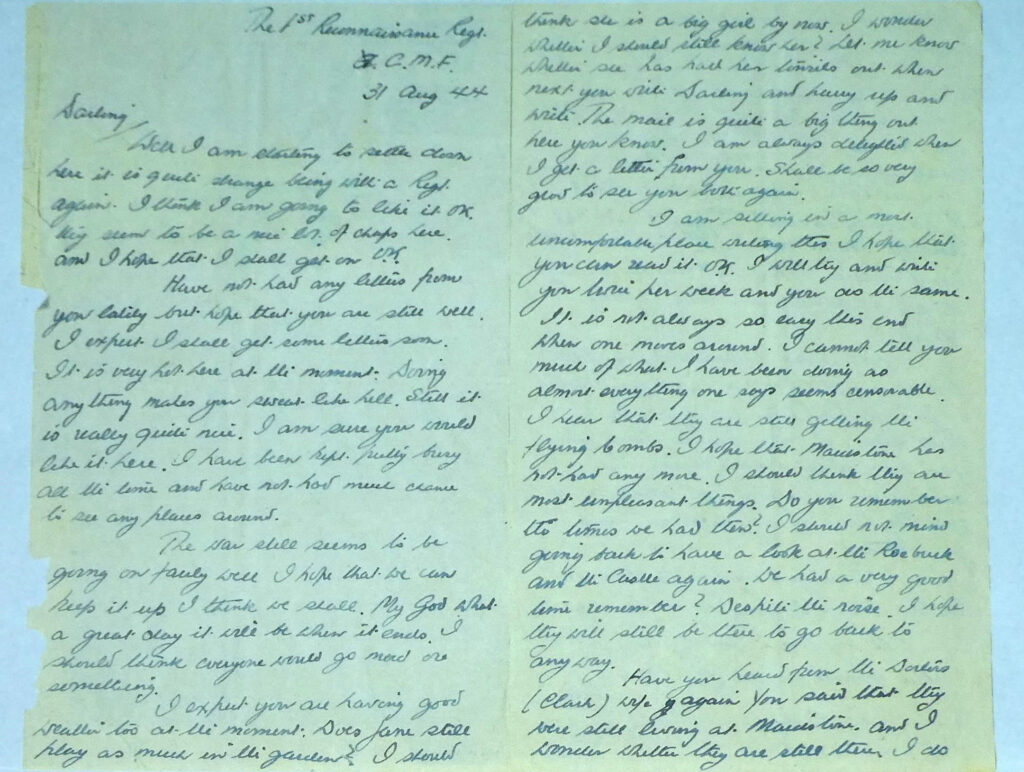 The 1ST Reconnaissance Regt.
C.M.F.
31 Aug 44
Darling
Well I am starting to settle down
here it is quite strange being with a Regt.
again. I think I am going to like it OK.
they seem to be a nice lot of chaps here.
and I hope that I shall get on OK.
Have not had any letters from
you lately but hope that you are still well.
I expect I shall get some letters soon.
It is very hot here at the moment. Doing
anything makes you sweat like hell. Still it
is really quite nice. I am sure you would
like it here. I have been kept pretty busy
all the time and have not had much chance
to see any places around.
The war still seems to be
going on fairly well I hope that we can
keep it up I think we shall. My God what
a great day it will be when it ends. I
should think everyone would go mad or
something.
I expect you are having good
weather too at the moment. Does Jane still
play as much in the garden? I should
think she is a big girl by now. I wonder
whether I should still know her? Let me know
whether she has had her tonsils out when
next you write Darling and hurry up and
write. The mail is quite a big thing out
here you know. I am always delighted when
I get a letter from you. Shall be so very
good to see you both again.
I am sitting in a most
uncomfortable place writing this I hope that
you can read it OK. I will try and write
you twice per week and you do the same.
It is not always so easy this end
when one moves around. I cannot tell you
much of what I have been doing as
almost everything one says seems censorable.
I hear that they are still getting the
flying bombs. I hope that Maidstone has
not had any more. I should think they are
most unpleasant things. Do you remember
the times we had then? I should not mind
going back to have a look at the Roebuck
and the Castle again. We had a very good
time remember? Despite the noise. I hope
they will still be there to go back to
any way.
Have you heard from the
(Clark) wife again You said that they
were still living at Maidstone. and I
wonder whether they are still there, I do